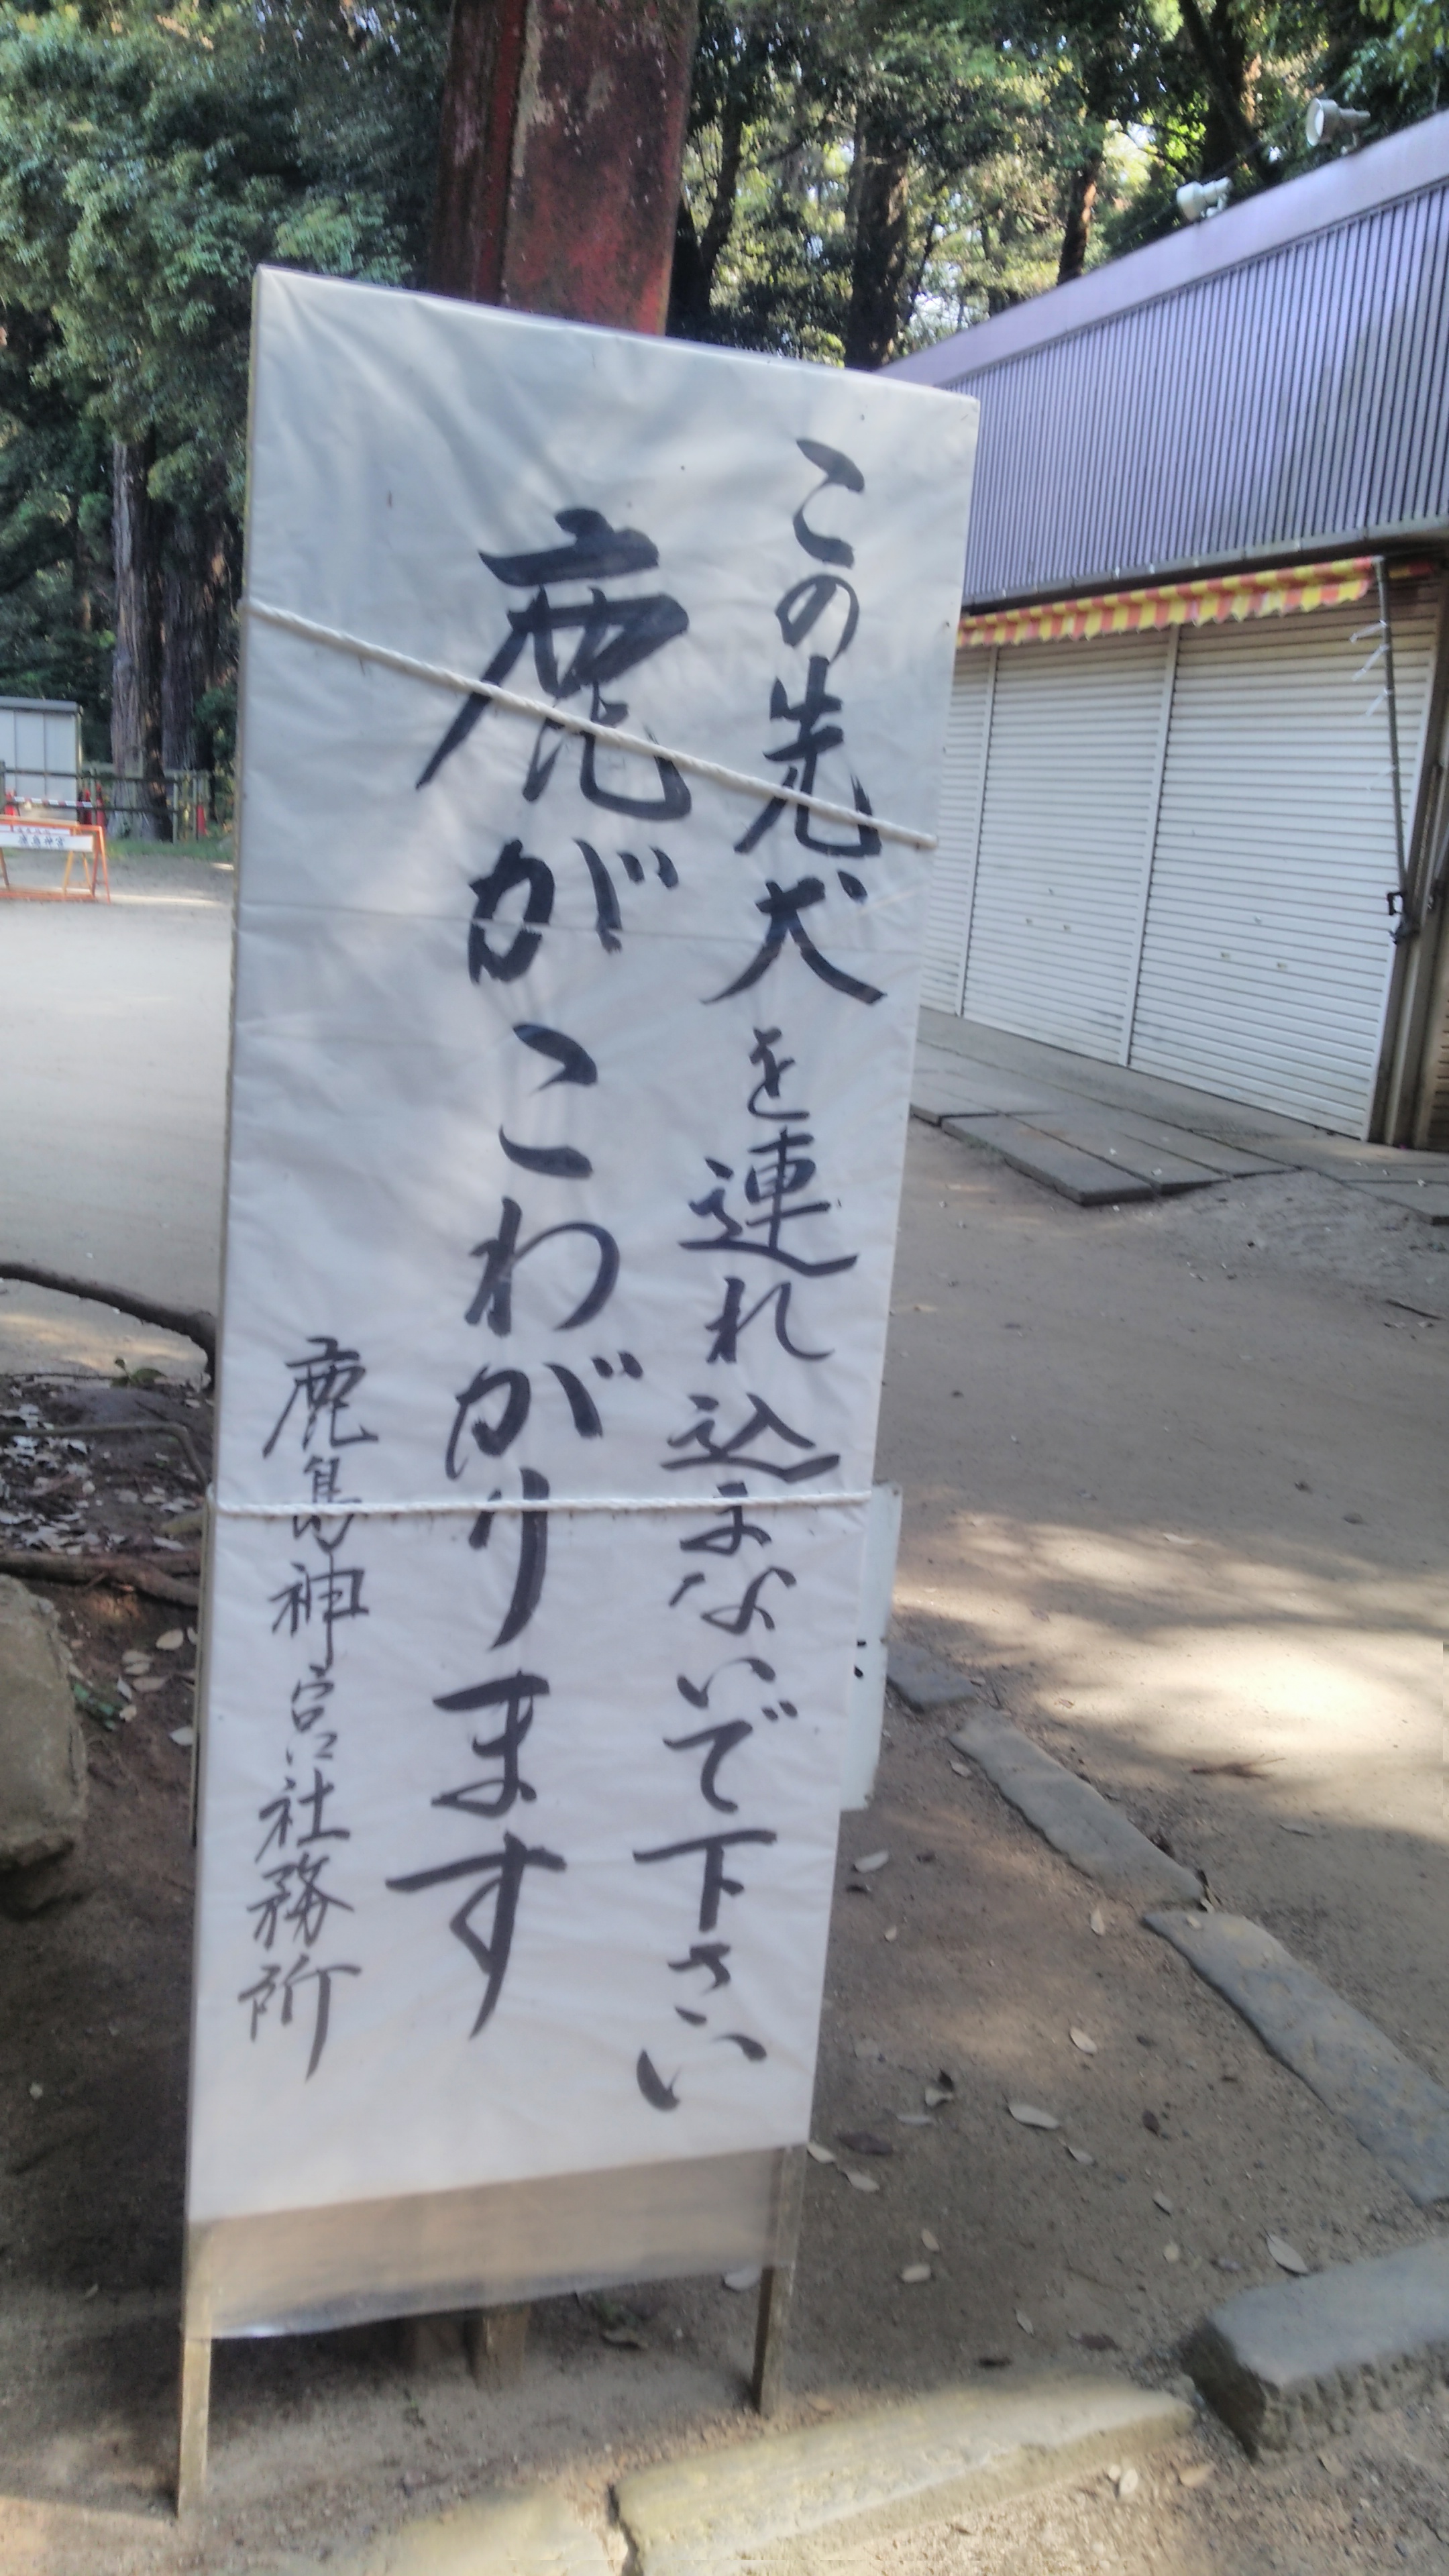 この先犬を連れ込まないで下さい
鹿がこわがります
鹿島神宮社務所
鹿島神宮